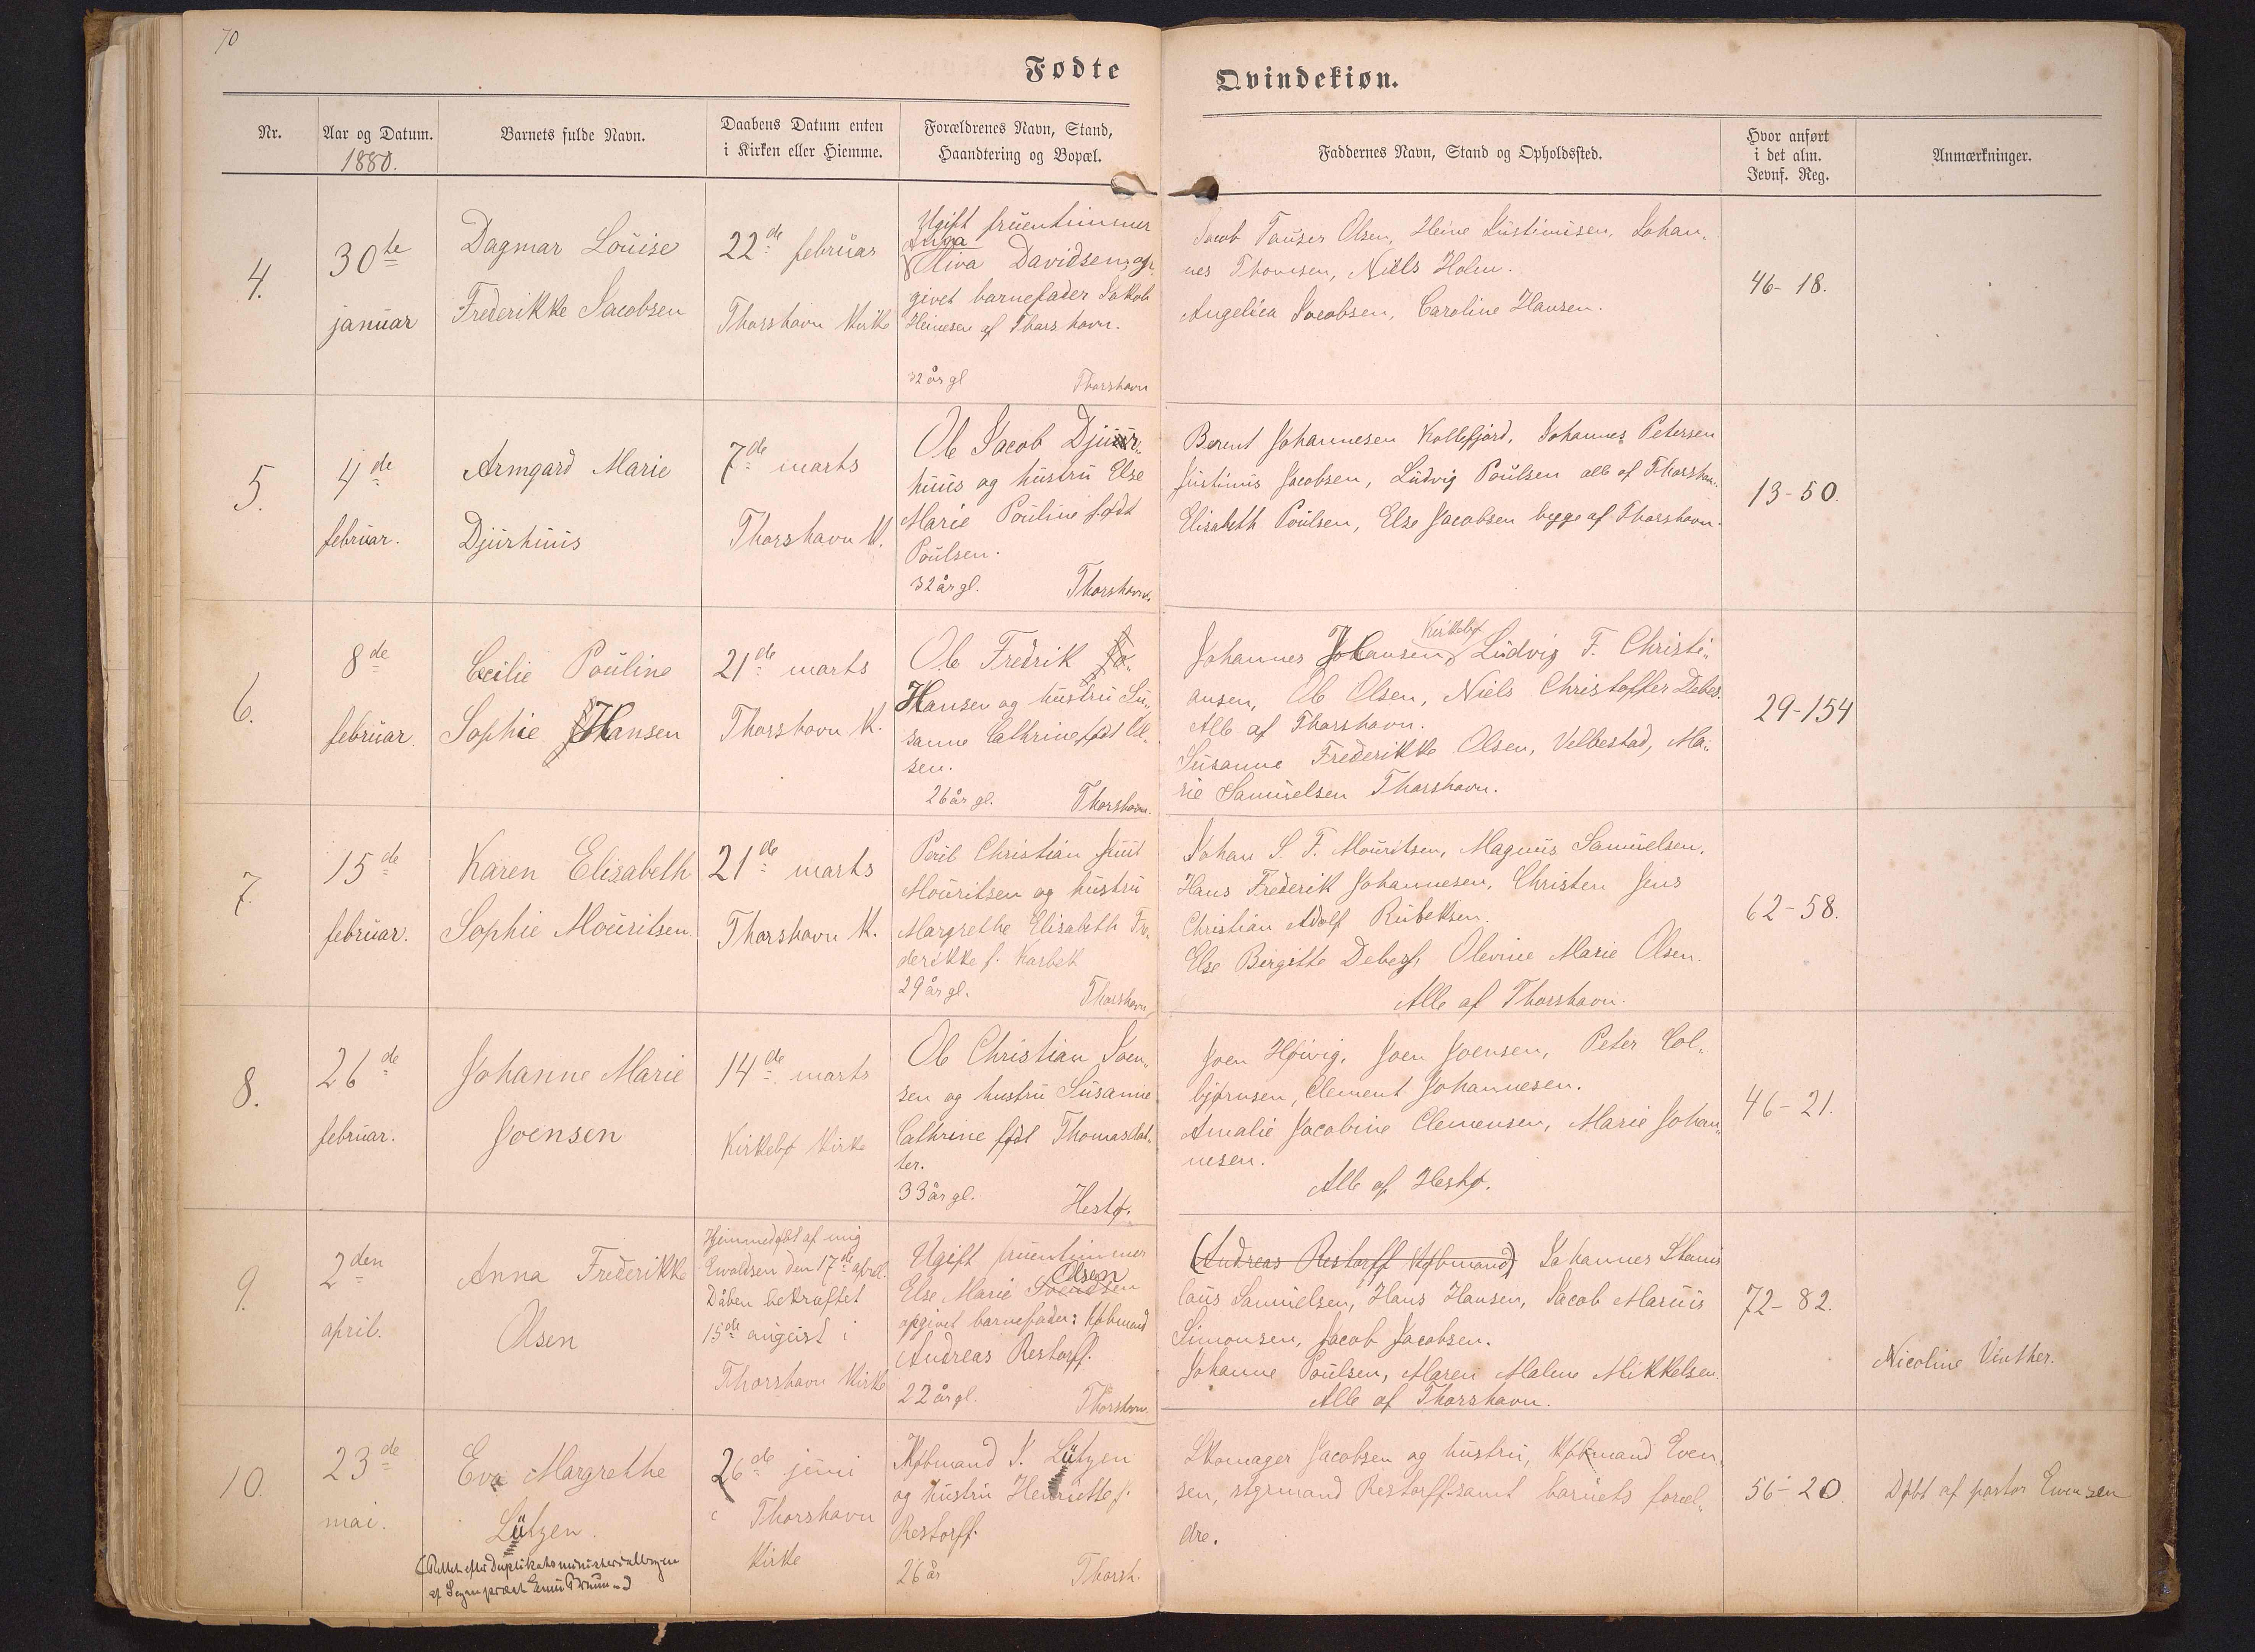 70
Fødte
Qvindekiøn.
Nr.
Aar og Datum.
1880.
Barnets fulde Navn.
Daabens Datum enten
i Kirken eller Hiemme.
Forældrenes Navn, Stand,
Haandtering og Bopæl.
Faddernes Navn, Stand og Opholdssted.
Hvor anført
i det alm.
Jevnf. Reg.
Anmærkninger.
4.
30te
januar
Dagmar Louise
Frederikke Jacobsen
22de februar
Thorshavn Kirke
Ugift fruentimmer
Anna
Oliva Davidsen, op-
givet barnefader Jakob
Heinesen af Thorshavn.
32 år gl Thorshavn
Jacob Tauser Olsen, Heine Justinisen, Johan-
nes Thomsen, Niels Holm.
Angelica Jacobsen, Caroline Hansen.
46-18.
5.
4de
februar.
Armgard Marie
Djurhuus
7de marts
Thorshavn K.
Ole Jacob Djur-
huus og hustru Else
Marie Pouline født
Poulsen.
32 år gl. Thorshavn.
Berent Johannesen Kollefjord, Johannes Petersen
Justinus Jacobsen, Ludvig Poulsen alle af Thorshavn.
Elisabeth Poulsen, Else Jacobsen begge af Thorshavn.
13-50.
6.
8de
februar.
Cecilie Pouline
Sophie Hansen
21de marts
Thorshavn K.
Ole Fredrik Jo-
Hansen og hustru Su-
sanne Cathrine født Ol-
sen.
26 år gl. Thorshavn.
Kirkebø
Johannes Johansen, Ludvig F. Christi-
ansen, Ole Olsen, Niels Christoffer Debes.
Alle af Thorshavn.
Susanne Frederikke Olsen, Velbestad, Ma-
rie Samuelsen Thorshavn.
29-154
7.
15de
februar.
Karen Elisabeth
Sophie Mouritsen.
21de marts
Thorshavn K.
Poul Christian Juul
Mouritsen og hustru
Margrethe Elisabeth Fre-
derikke f. Korbek
29 år gl. Thorshavn
Johan S. F. Mouritsen, Magnus Samuelsen,
Hans Frederik Johannesen, Christen Jens
Christian Adolf Rubeksen.
Else Birgitte Debes, Olevine Marie Olsen.
Alle af Thorshavn.
62-58.
8.
26de
februar.
Johanne Marie
Joensen
14de marts
Kirkebø Kirke
Ole Christian Joen-
sen og hustru Susanne
Cathrine født Thomasdat-
ter.
33 år gl. Hestø.
Joen Høivig, Joen Joensen, Peter Col-
bjørnsen, Clement Johannesen.
Amalie Jacobine Clemensen, Marie Johan-
nesen.
Alle af Hestø.
46-21.
9.
2den
april.
Anna Frederikke
Olsen
Hjemmedøbt af mig
Evaldsen den 17de april.
Dåben bekræftet
15de august i
Thorshavn Kirke
Ugift fruentimmer
Olsen
Else Marie Joensen
opgivet barnefader: Købmand
Andreas Restorff.
22 år gl. Thorshavn.
(Andreas Restorff Købmand) Johannes Stanis
laus Samuelsen, Hans Hansen, Jacob Marius
Simonsen, Jacob Jacobsen.
Johanne Poulsen, Maren Malene Mikkelsen.
Alle af Thorshavn.
72-82.
Nicoline Vinther.
10.
23de
mai.
Eva Margrethe
Lützen.
(Rettet efter Duplikatministerialbogen
af Sognepræst
26de juni
i Thorshavn
Kirke
Købmand J. Lützen
og hustru Henriette f.
Restorff.
26 år Thorsh.
Skomager Jacobsen og hustru, Købmand Even-
sen, styrmand Restorff samt barnets foræl-
dre.
56-20.
Døbt af pastor Evensen